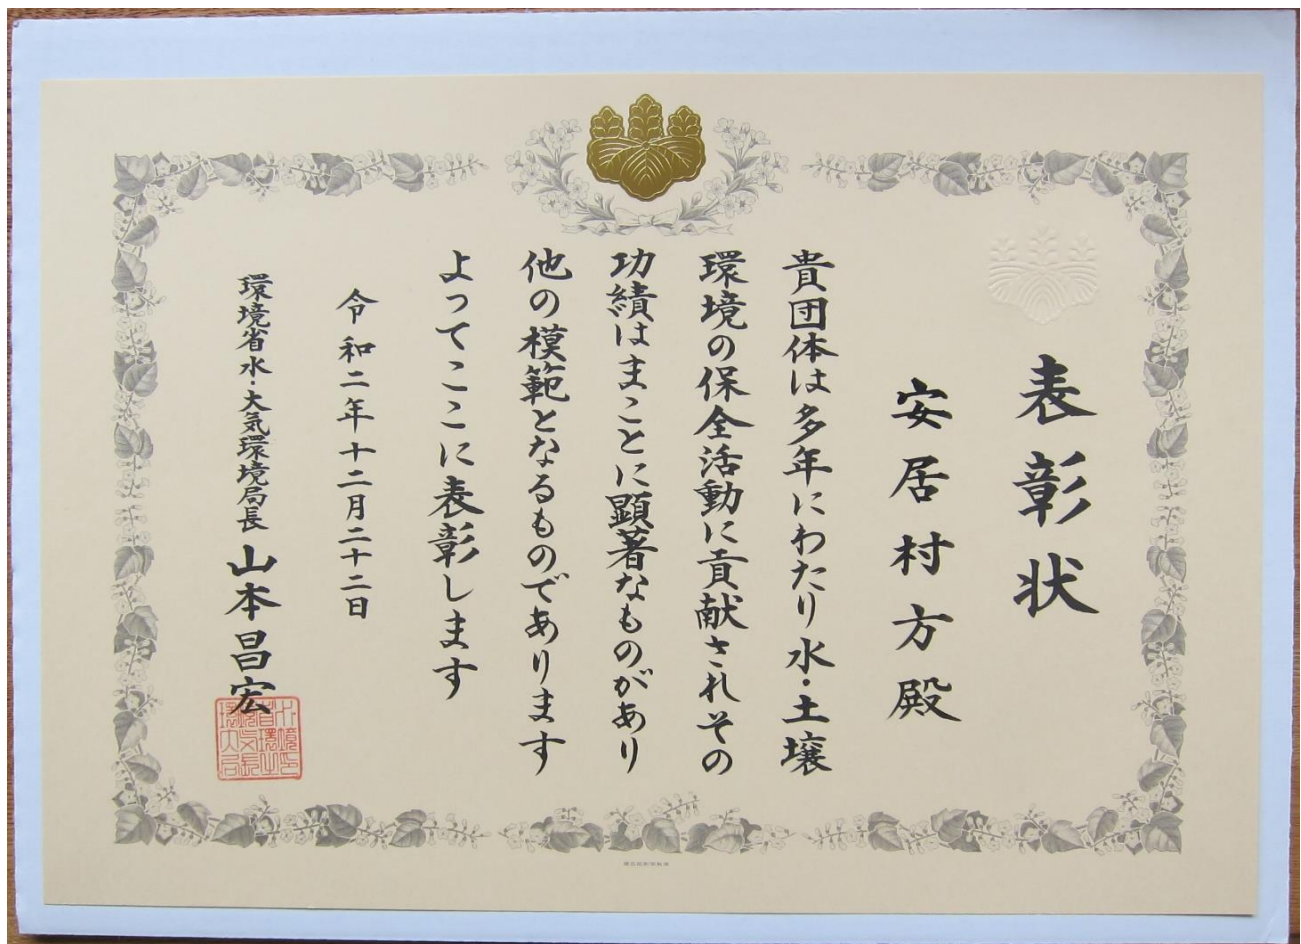 表彰状
安居村方殿
貴団体は多年にわたり水・土壌
環境の保全活動に貢献されその
功績はまことに顕著なものがあり
他の模範となるものであります
よってここに表彰します
令和二年十二月二十二日
環境省水・大気環境局長 山本昌宏